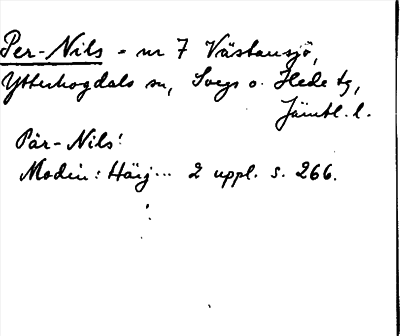 Per-Nils - nr 7 Västansjö,
Ytterhogdals sn, Svegs o. Hede tg,
Jämtl. l.
Pär-Nils!
Modin: Härj... 2 uppl. s. 266.